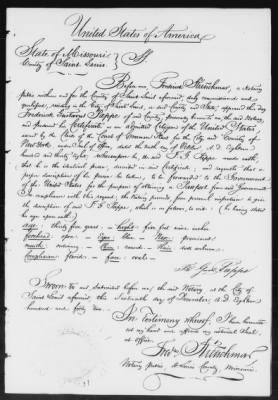 United States of America
State of Missouri
County of Saint Louis } SS
Before me, Fredrick Kretschmar, a Notary
public within and for the County of Saint Louis aforesaid duly commissioned and
qualified, residing in the City of Saint Louis, in said County and State, appeared this day
Frederick Gustavus Pappe of said County, personally known to me, the said Notary
and produced a Certificate as an admitted Citizen of the United States
issued by the Clerk of the Court of Common Pleas for the City and County of
New York under Seal of office, dated the tenth day of A.D. Eighteen
hundred and thirty eight, the said F. G. Pappe made oath,
that he is the identical person described in said Certificate, and required that a
proper description of his person be taken, to be forwarded to the Government
of the United States for the purpose of obtaining a Passport from said Government
In compliance with this request, the Notary proceeds from personal inspection to give
the description of said F. G. Pappe, which is as follows, to wit: (he being stated
his age upon oath)
age: thirty five years - height: five feet nine inches
forehead: open - Eyes: blue - Nose: prominent
mouth: ordinary - chin: round - Hair: dark auburn
Complexion: florid - face: oval -
Fr. Gus. Pappe
Sworn to and subscribed before me, the said Notary at the City of
Saint Louis aforesaid this sixteenth day of December, A.D. Eighteen
hundred and forty
In Testimony whereof, I have hereunto
set my hand and affixed my notarial Seal
at office.
Fredk. Kretschmar
Notary Public, St. Louis County, Missouri